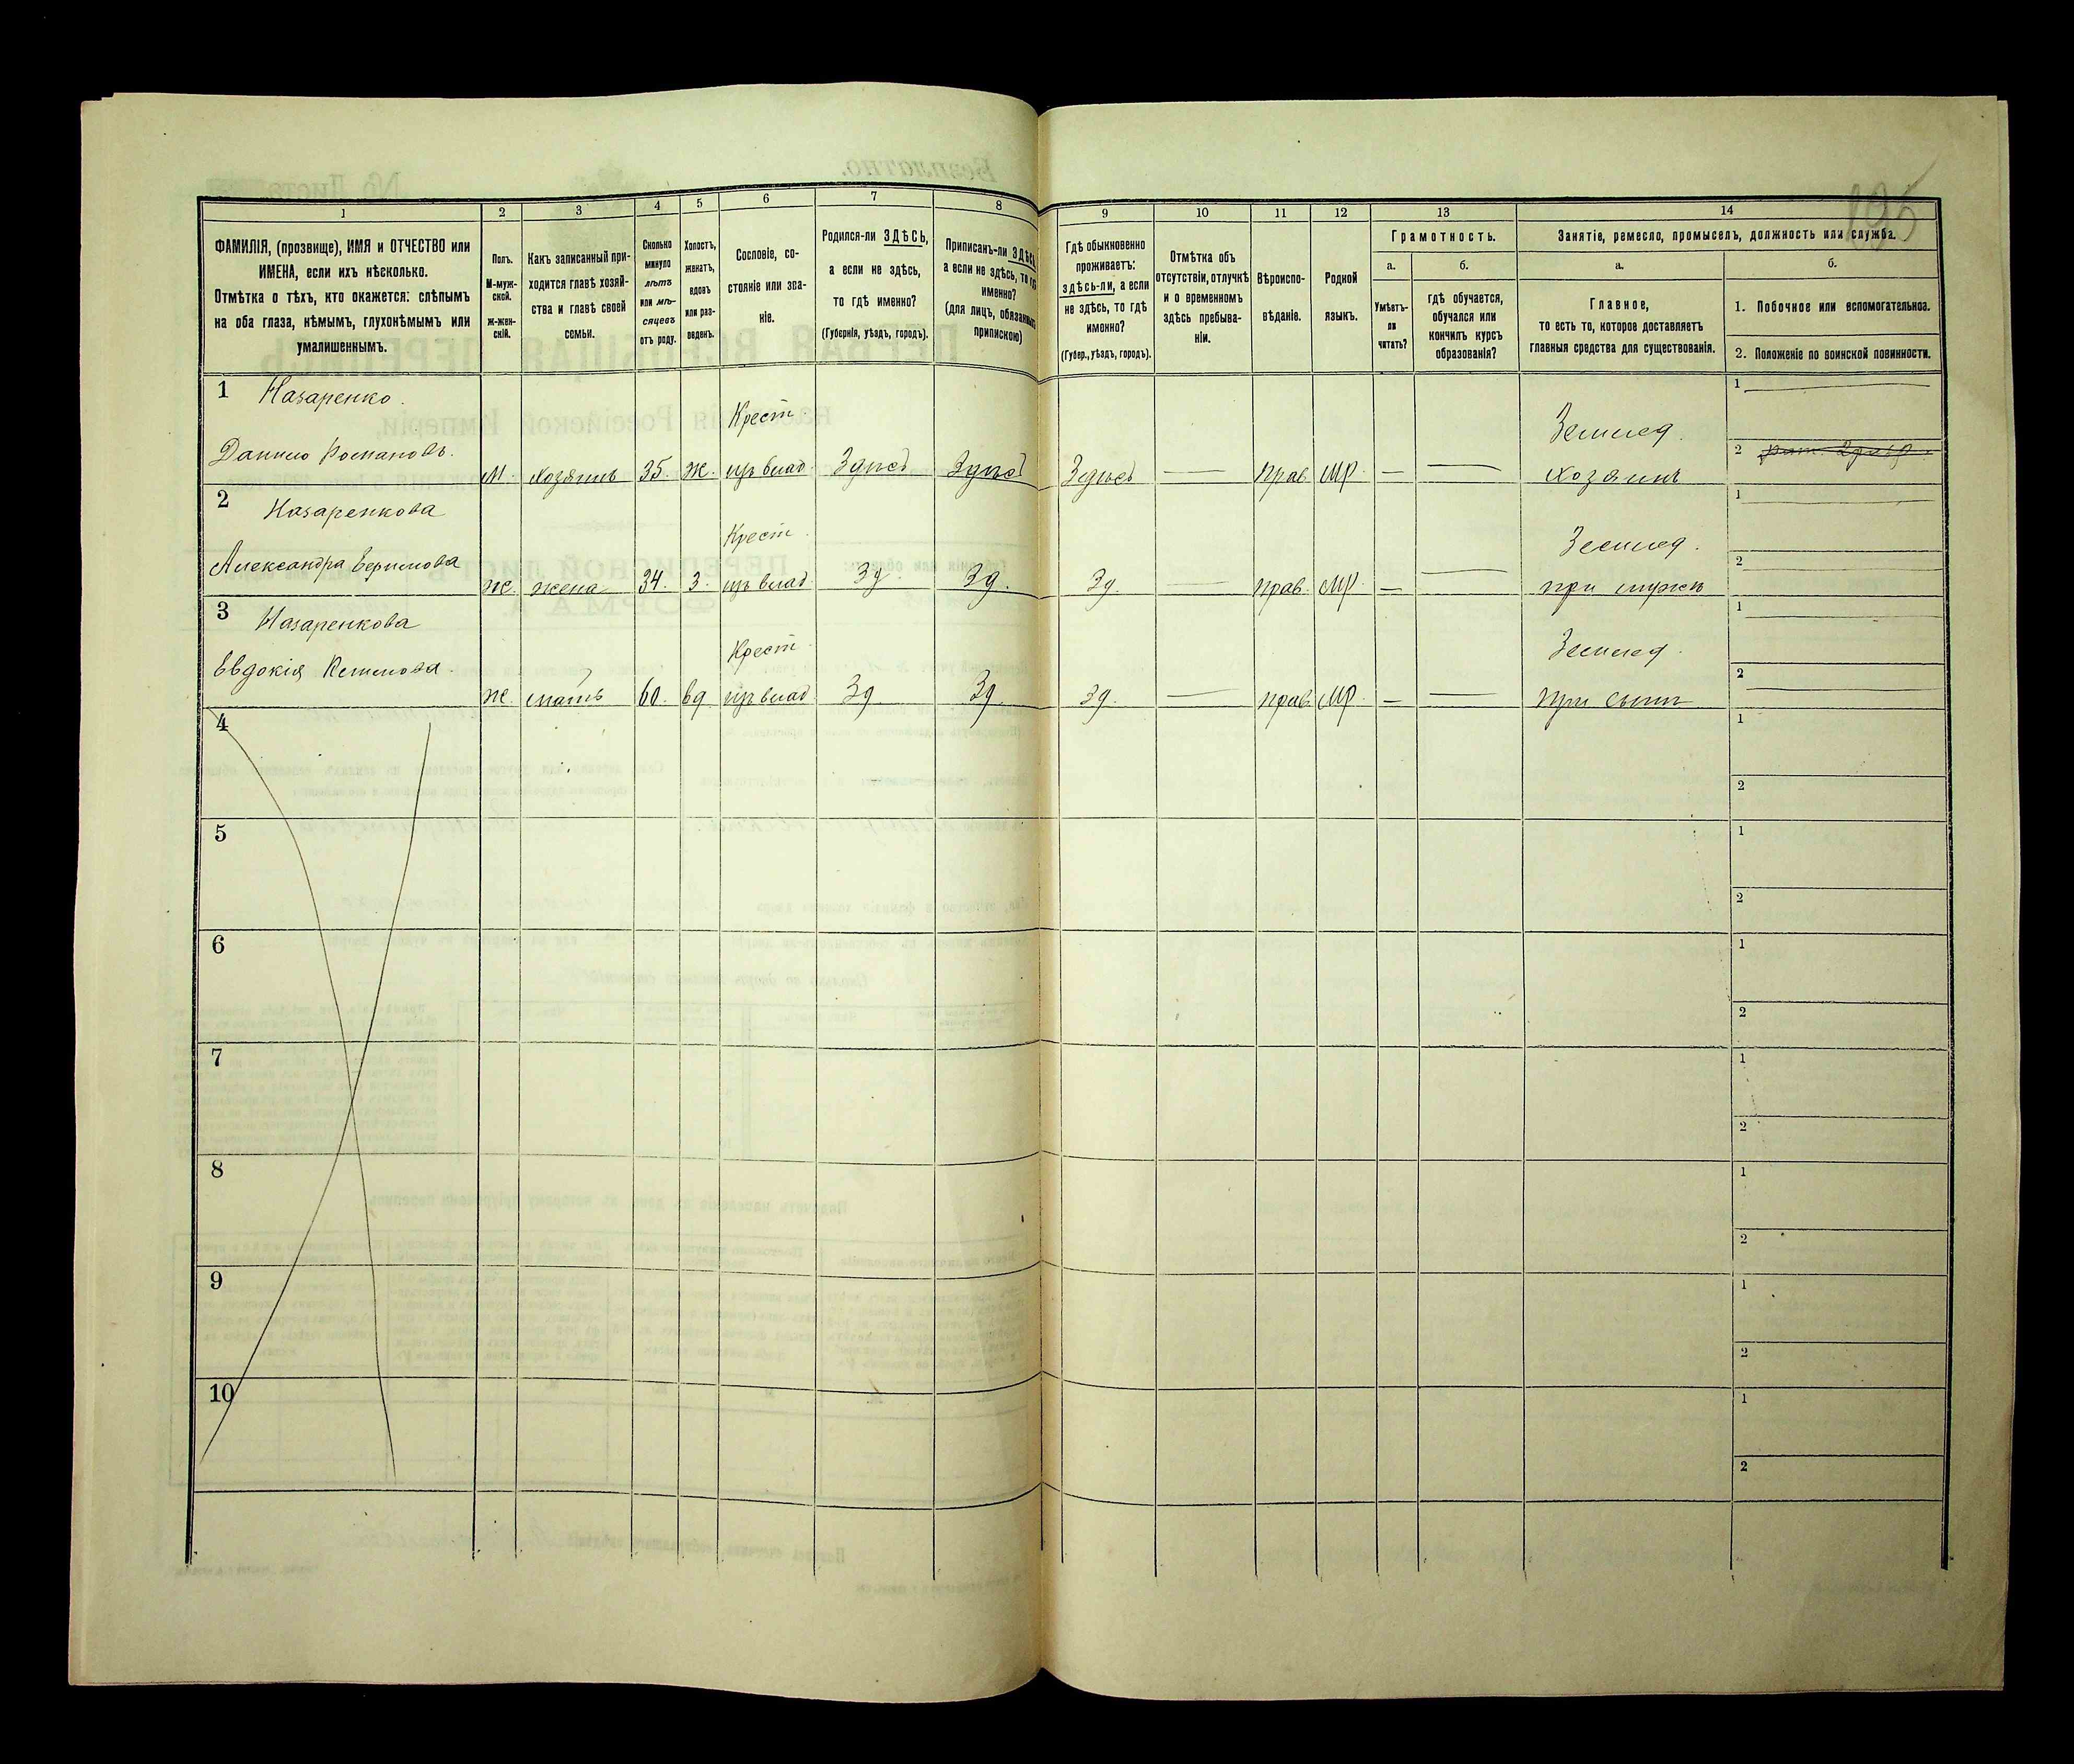 195
1 2 3 4 5 6 7 8 9 10 11 12 13 14
ФАМИЛІЯ, (прозвище), ИМЯ и ОТЧЕСТВО или
ИМЕНА, если ихъ нѣсколько.
Отмѣтка о тѣхъ, кто окажется: слѣпымъ
на оба глаза, нѣмымъ, глухонѣмымъ или
умалишеннымъ.
Полъ.
М-муж-
ской.
ж-жен-
скій.
Какъ записанный при-
ходится главѣ хозяй-
ства и главѣ своей
семьи.
Сколько
минуло
лѣтъ
или мѣ-
сяцевъ
отъ роду.
Холостъ,
женатъ,
вдовъ
или раз-
веденъ.
Сословіе, со-
стояніе или зва-
ніе.
Родился-ли ЗДѢСЬ,
а если не здѣсь,
то гдѣ именно?
(Губернія, уѣздъ, городъ).
Приписанъ-ли ЗДѢСЬ
а если не здѣсь, то гдѣ
именно?
(для лицъ, обязанныхъ
припискою)
Гдѣ обыкновенно
проживаетъ:
здѣсь-ли, а если
не здѣсь, то гдѣ
именно?
(Губер., уѣздъ, городъ).
Отмѣтка объ
отсутствіи, отлучкѣ
и о временномъ
здѣсь пребыва-
ніи.
Вѣроиспо-
вѣданіе.
Родной
языкъ.
Грамотность.
а.
Умѣетъ-
ли
читать?
б.
гдѣ обучается,
обучался или
кончилъ курсъ
образованія?
Занятіе, ремесло, промыселъ, должность или служба.
а.
Главное,
то есть то, которое доставляетъ
главныя средства для существованія.
б.
1. Побочное или вспомогательное.
2. Положеніе по воинской повинности.
1 Назаренко. Крест Землед. 1
Данило Романовъ. М. хозяинъ 35. ж. изъ влад. Здѣсь Здѣсь Здѣсь — прав. мр. — — хозяинъ 2
2 Назаренкова Крест. Землед. 1
Александра Ефимова ж. жена 34. з. изъ влад. Зд. Зд. Зд. — прав. мр. — — при мужѣ 2
3 Назаренкова Крест. Землед. 1
Евдокія Климова. ж. мать 60. вд. изъ влад. Зд Зд. Зд. — прав. мр. — — при сынѣ 2
4 1
2
5 1
2
6 1
2
7 1
2
8 1
2
9 1
2
10 1
2